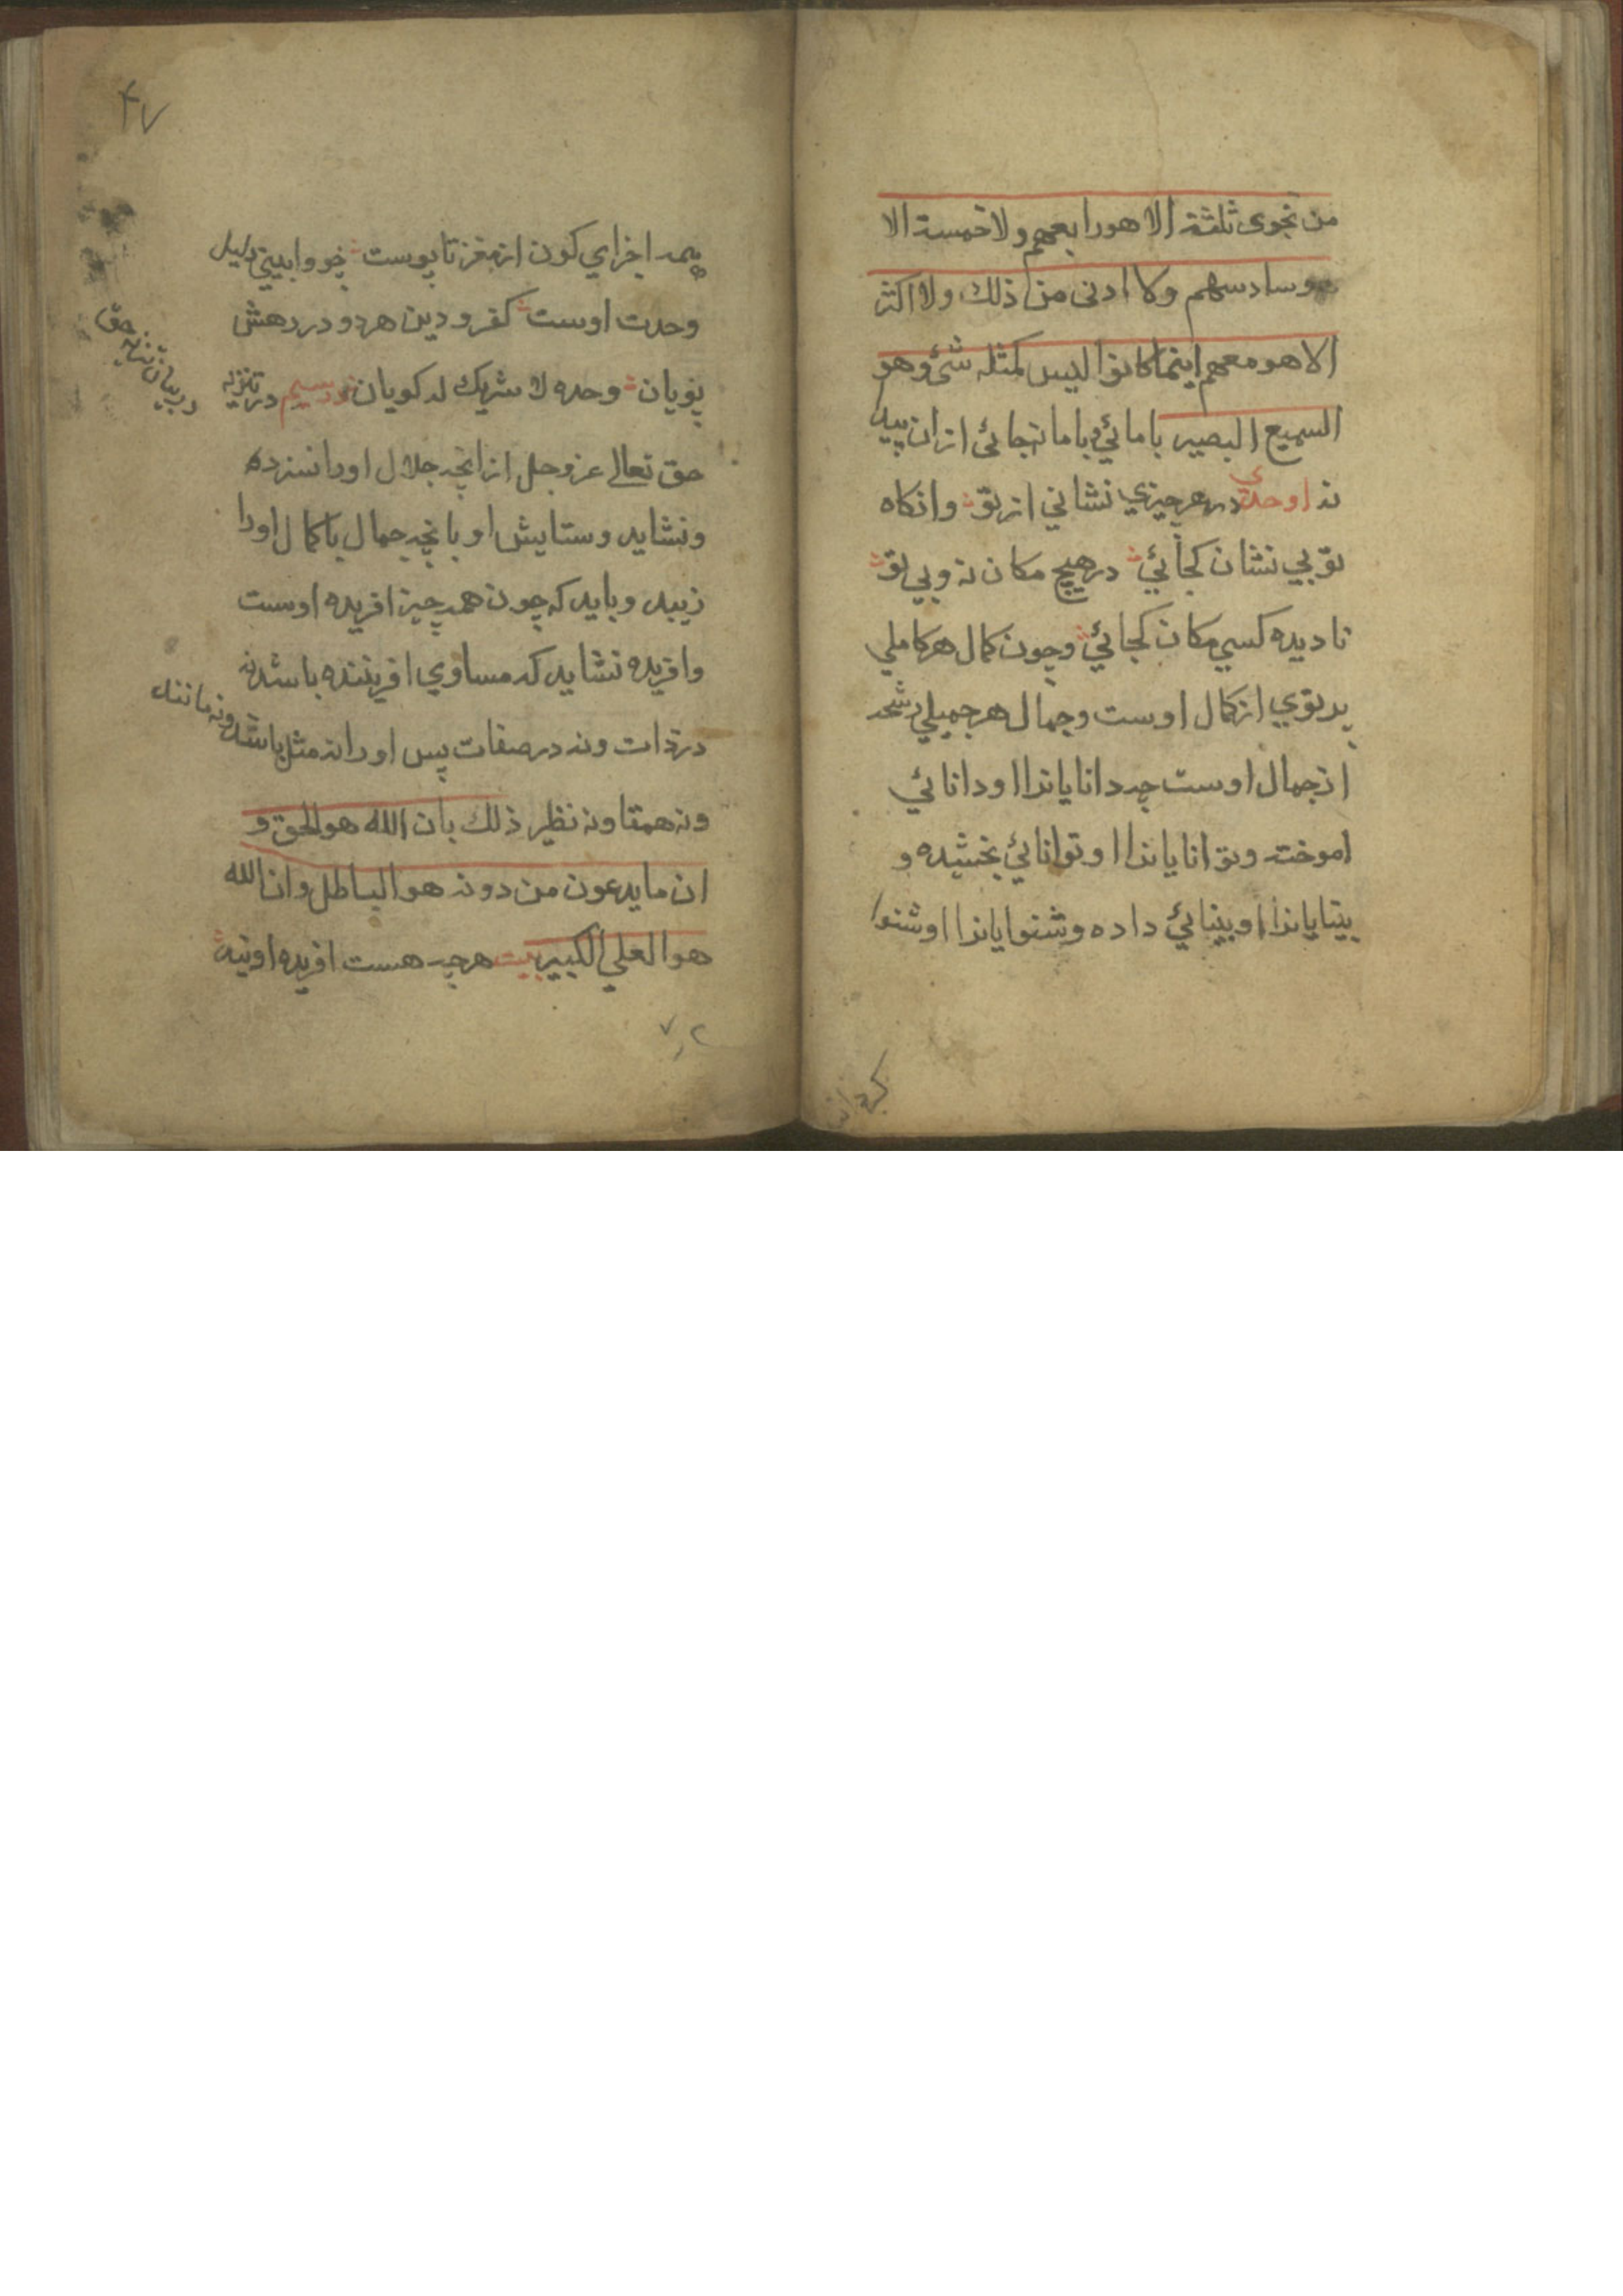 من نجوی ثلثة الا هو رابعهم ولا خمسة الا
هو سادسهم ولا ادنی من ذلك ولا اکثر
الا هو معهم اینما کانوا لیس کمثله شیٔ وهو
السمیع البصیر با مائی و با ما نه جائی ازان پیدا
نه اوحدی در هر چیزي نشاني از تو وانکاه
تو بي نشان کجائي در هیچ مکان نه و بي تو
نا دیده کسي مکان کجائي وچون کمال هر کاملي
پرتوي از کمال اوست وجمال هر جمیلي رشحه
از جمال اوست چه دانایانرا او دانائي
اموخته وتوانایانرا او توانائي بخشیده و
بینایانرا او بینائي داده وشنوایانرا او شنوا
۴۷
همه اجزاي کون از مغز تا پوست چو وا بیني دلیل
وحدت اوست کفر و دین هر دو در رهش
پویان وحده لا شریك له کویان نور سیم در تنزیه
در بیان تنزیه حق
حق تعالی عز وجل ازانچه جلال او را نسزد
ونشاید وستایش او بانچه جمال با کمال او را
زیبد وباید که چون همه چیز افریده اوست
وافریده نشاید که مساوي افریننده باشد نه
در ذات ونه در صفات پس او را نه مثل باشد ونه مانند
ونه همتا ونه نظیر ذلك بان الله هو الحق و
ان ما یدعون من دونه هو الباطل وان الله
هو العلي الکبیر بیت هر چه هست افریده اویند